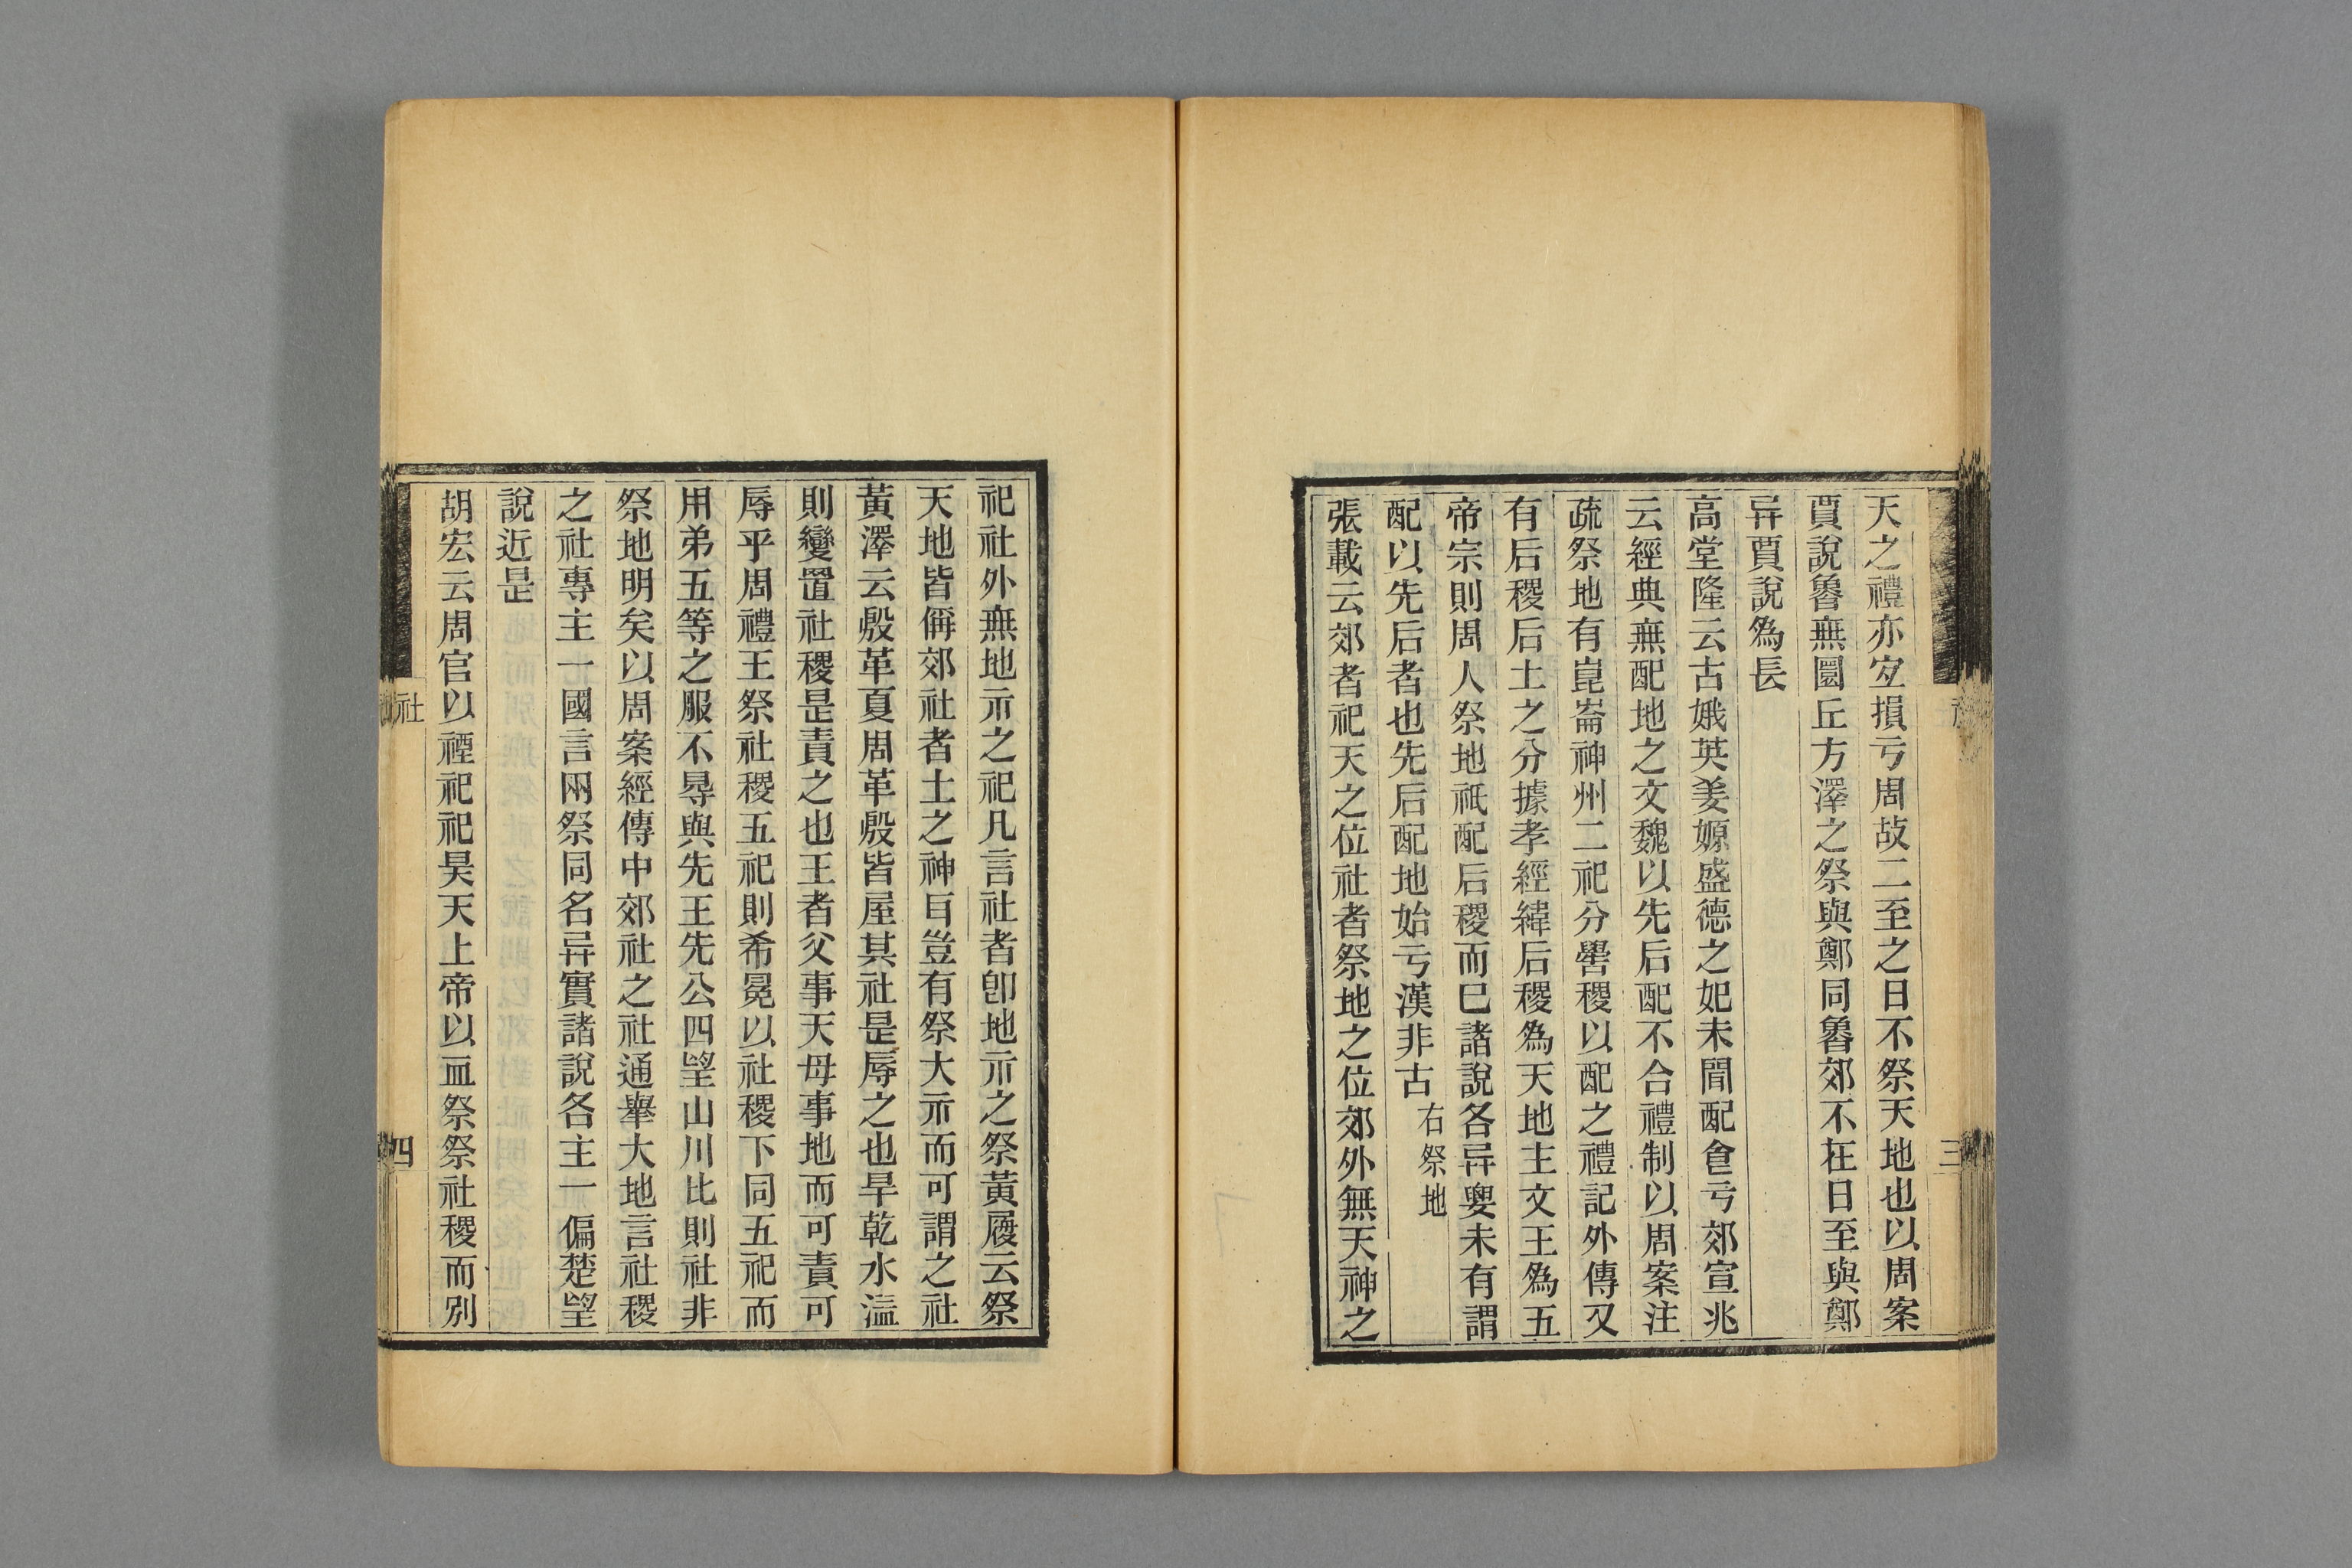 天之禮亦宐損亏周故二至之日不祭天地也以周案
賈說魯無圜丘方澤之祭與鄭同魯郊不在日至與鄭
异賈說爲長
高堂隆云古娥英姜嫄盛德之妃未聞配食亏郊宣兆
云經典無配地之文魏以先后配不合禮制以周案注
疏祭地有崑崙神州二祀分嚳稷以配之禮記外傳又
有后稷后土之分據孝經緯后稷爲天地主文王爲五
帝宗則周人祭地祇配后稷而巳諸說各异要未有謂
配以先后者也先后配地始亏漢非古 右祭地
張載云郊者祀天之位社者祭地之位郊外無天神之
三
祀社外無地示之祀凡言社者卽地示之祭黃履云祭
天地皆偁郊社者土之神㠯豈有祭大示而可謂之社
黃澤云殷革夏周革殷皆屋其社是辱之也旱乾水溢
則變置社稷是責之也王者父事天母事地而可責可
辱乎周禮王祭社稷五祀則希冕以社稷下同五祀而
用弟五等之服不㝵與先王先公四望山川比則社非
祭地明矣以周案經傳中郊社之社通舉大地言社稷
之社專主一國言兩祭同名异實諸說各主一偏楚望
說近是
胡宏云周官以禋祀祀昊天上帝以血祭祭社稷而別
社
四